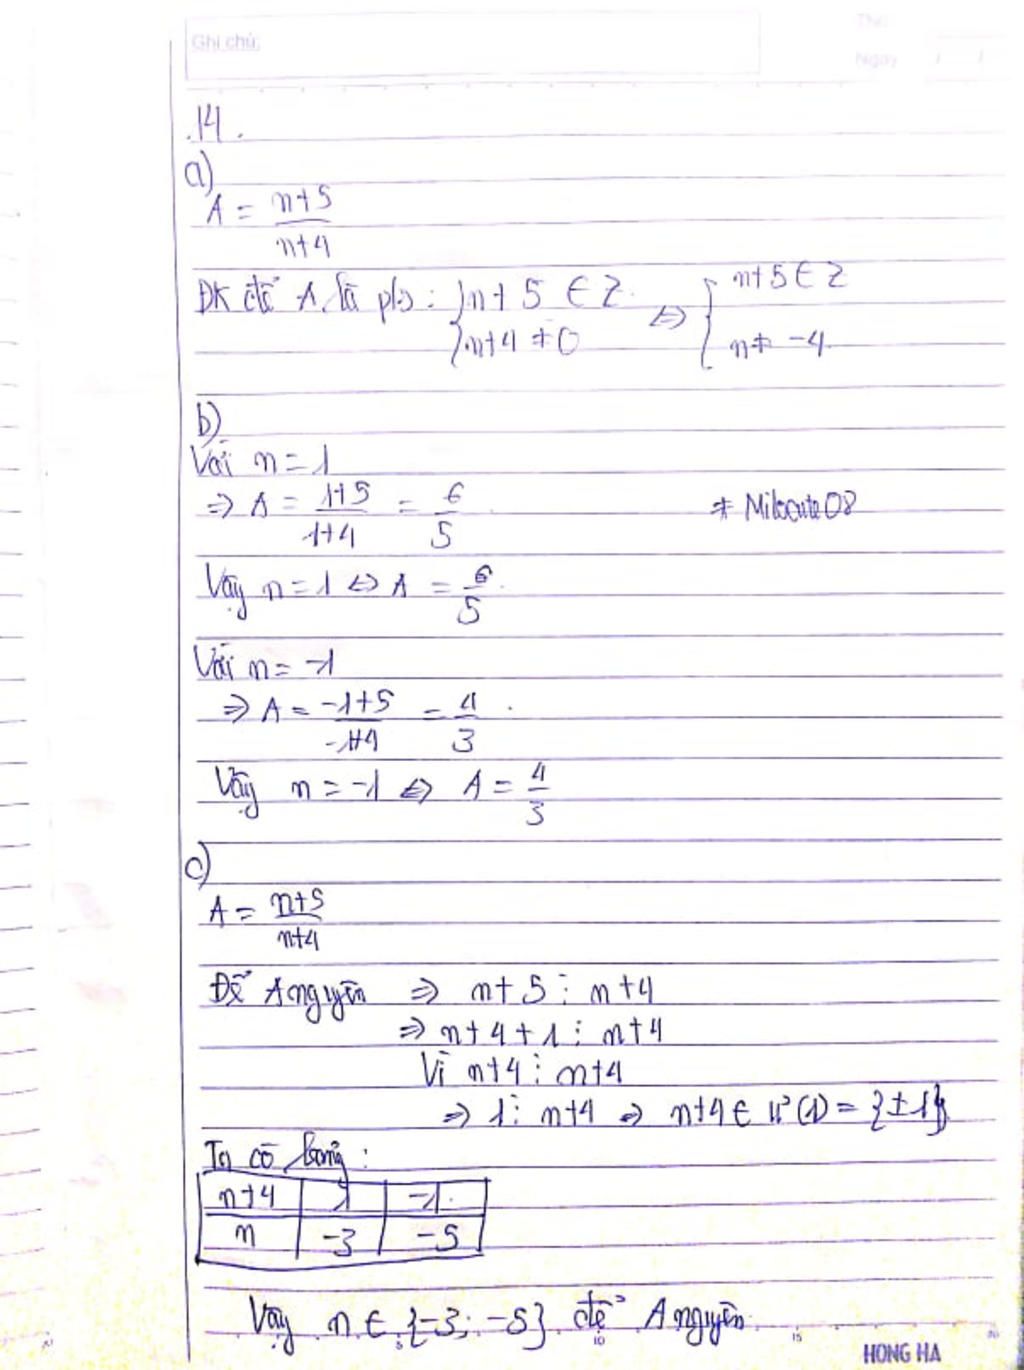 Ghi chú:
Thứ
Ngày / /
.14.
a)
A = n+5 / n+4
ĐK để A là p/s : { n+5 ∈ Z ; n+4 ≠ 0 ⇔ { n+5 ∈ Z ; n ≠ -4
b)
Với n = 1
⇒ A = 1+5 / 1+4 = 6/5
* Milocute08
Vậy n = 1 ⇔ A = 6/5
Với n = -1
⇒ A = -1+5 / -1+4 = 4/3
Vậy n = -1 ⇔ A = 4/3
c)
A = n+5 / n+4
Để A nguyên ⇒ n+5 ⋮ n+4
⇒ n+4+1 ⋮ n+4
Vì n+4 ⋮ n+4
⇒ 1 ⋮ n+4 ⇒ n+4 ∈ Ư(1) = {±1}
Ta có bảng :
n+4 1 -1
n -3 -5
Vậy n ∈ {-3; -5} để A nguyên
5 10 15 20
HONG HA